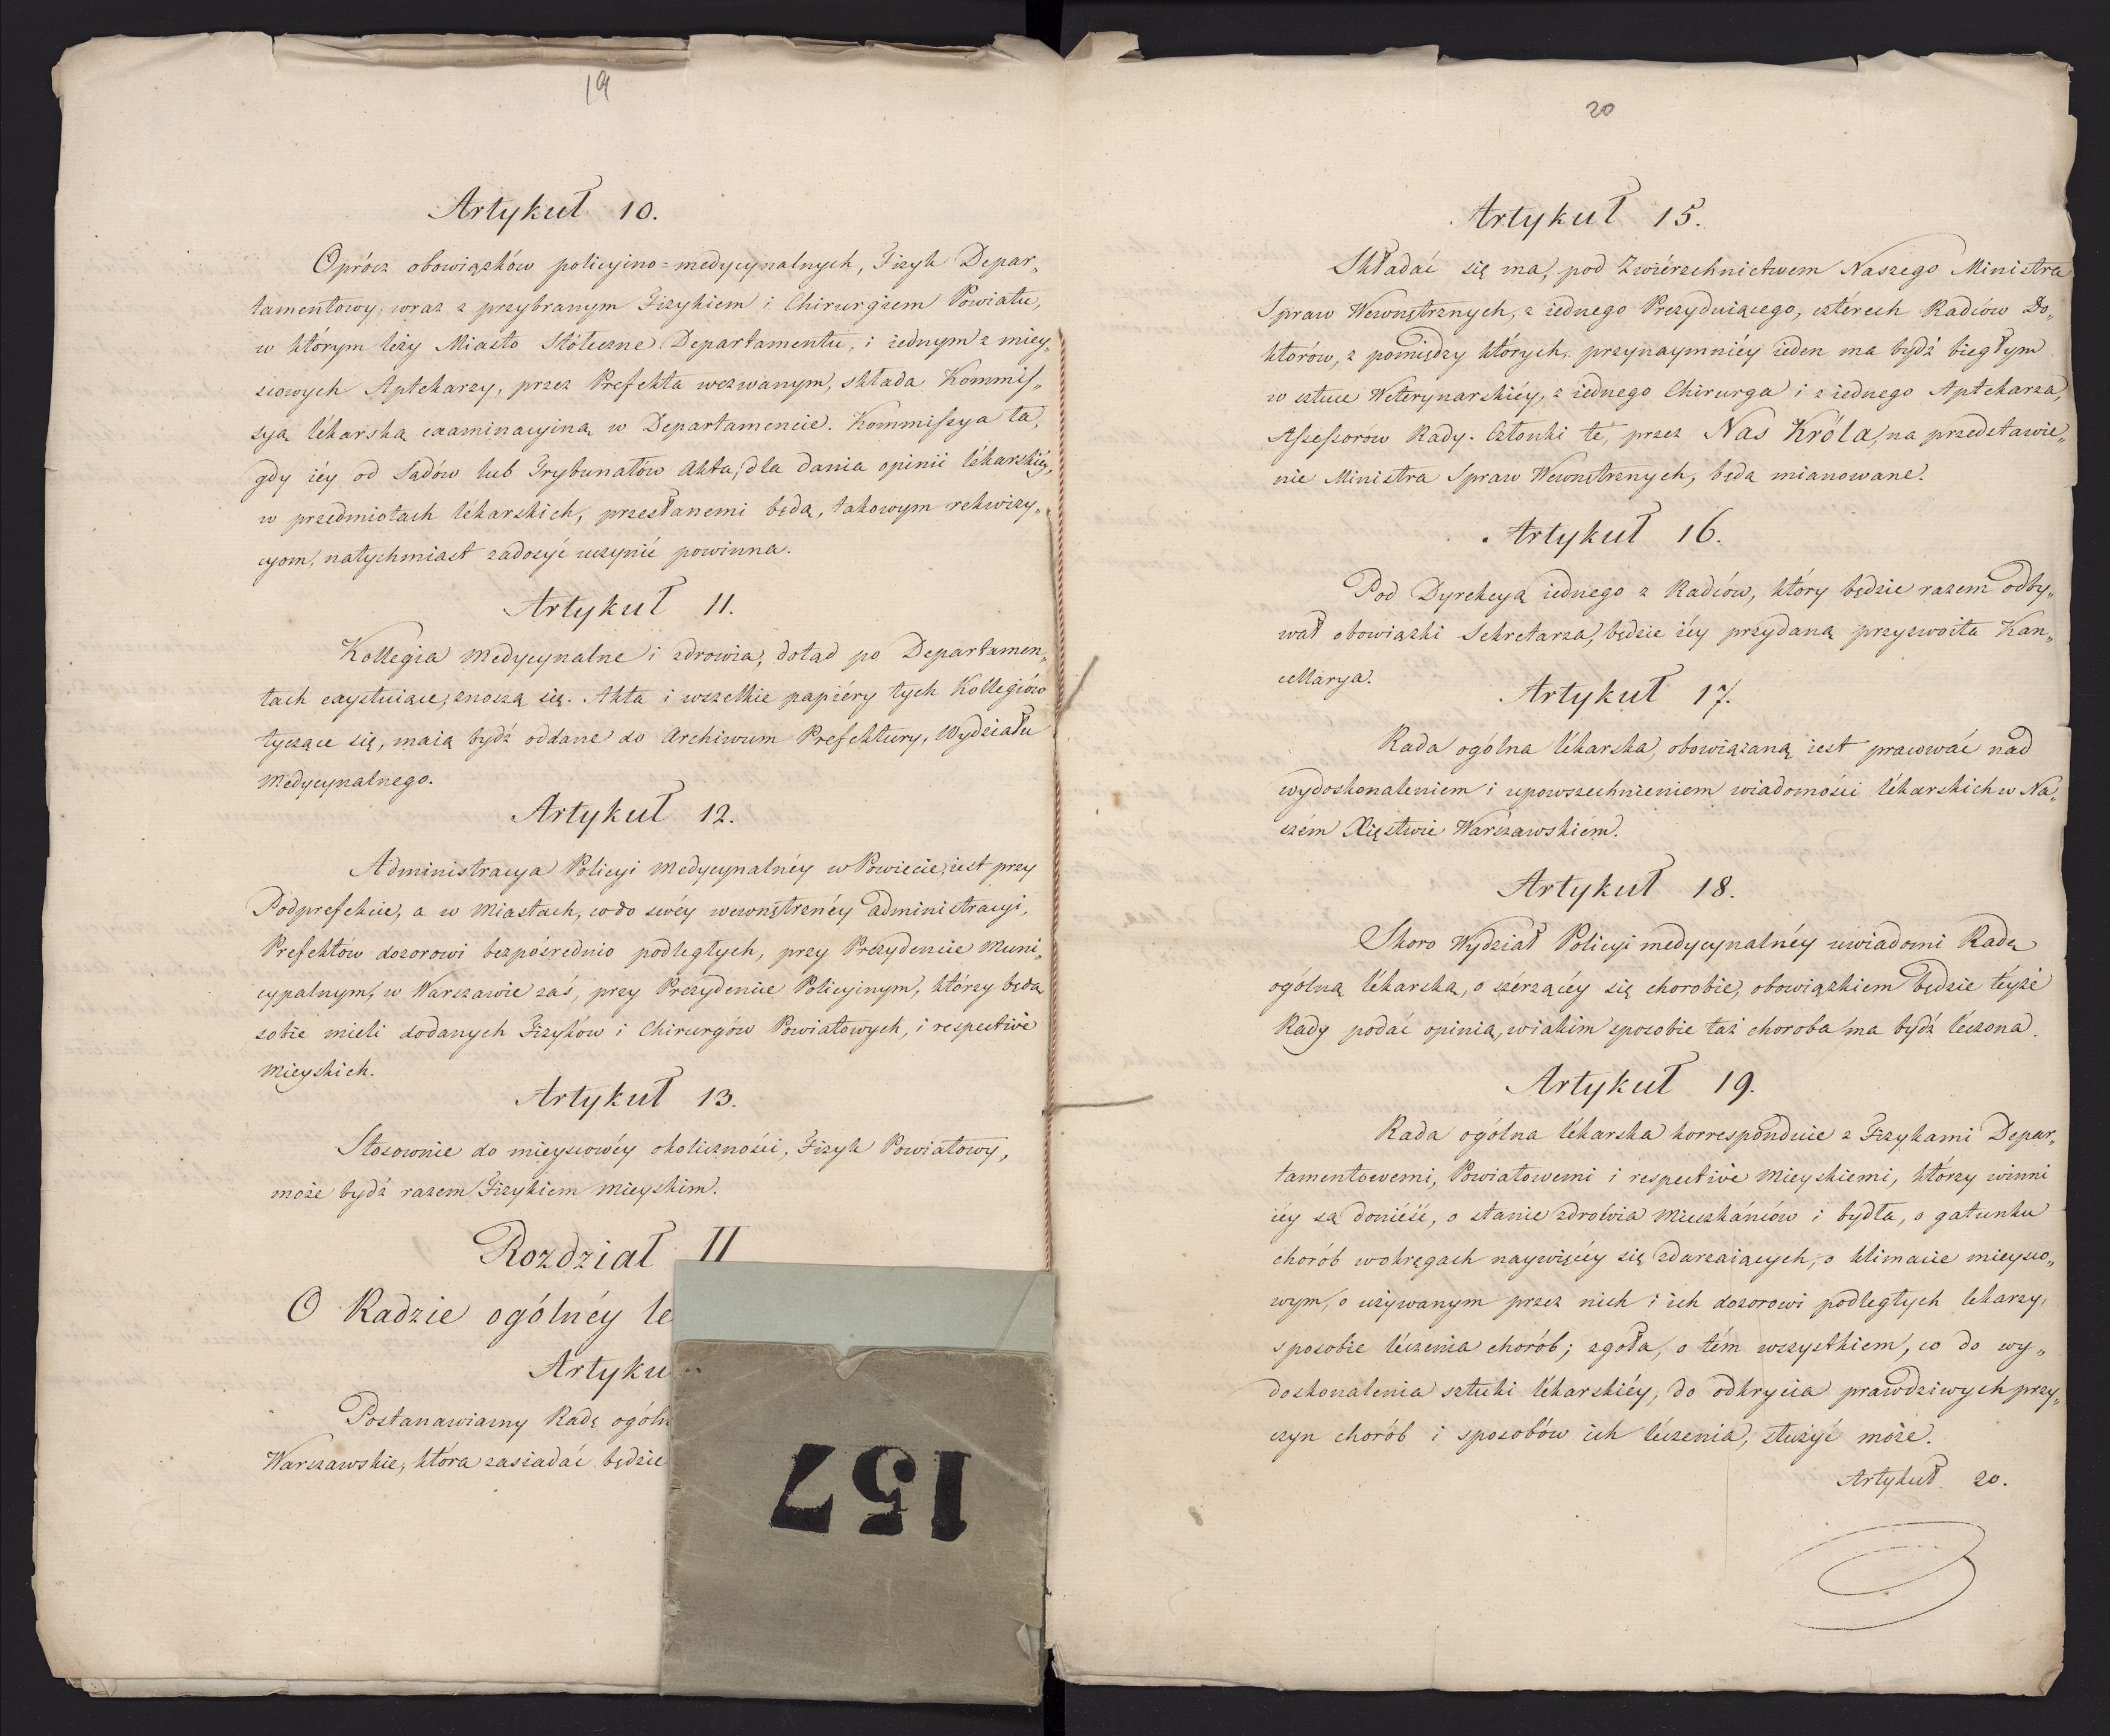 19
Artykuł 10.
Oprócz obowiązków policyino=medycynalnych, Fizyk Depar„
tamentowy, wraz z przybranym Fizykiem i Chirurgiem Powiatu,
w którym leży Miasto Stółeczne Departamentu, i iednym z miey„
scowych Aptekarzy, przez Prefekta wezwanym, składa Kommis„
syą lékarską examinacyiną w Departamencie. Kommissya ta,
gdy iéy od Sądów lub Trybunałów Akta, dla dania opinii lékarskiéy,
w przedmiotach lékarskich, przesłanemi będą, takowym rekwizy„
cyom, natychmiast zadosyć uczynić powinna.
Artykuł 11.
Kollegia Medycynalne i zdrowia, dotąd po Departamen„
tach exystuiące, znoszą się. Akta i wszelkie papiéry tych Kollegiów
tyczące się, maią bydź oddane do Archiwum Prefektury, Wydziału
Medycynalnego.
Artykuł 12.
Administracya Policyi Medycynalnéy w Powiecie, iest przy
Podprefekcie, a w Miastach, co do swéy wewnętrznéy administracyi,
Prefektów dozorowi bezpośrednio podległych, przy Prezydencie Muni„
cypalnym, w Warszawie zaś, przy Prezydencie Policyinym, którzy będą
sobie mieli dodanych Fizyków i Chirurgów Powiatowych, i respective
Mieyskich.
Artykuł 13.
Stosownie do mieyscowéy okoliczności, Fizyk Powiatowy,
może bydź razem Fizykiem Mieyskim.
Rozdział II
O Radzie ogólnéy le
Artyku
Postanawiamy Radę ogóln
Warszawskie, która zasiadać będzie
157
20
Artykuł 15.
Składać się ma, pod Zwiérzchnictwem Naszego Ministra
Spraw Wewnętrznych, z iednego Prezyduiącego, cztérech Radców Do„
ktorów, z pomiędzy których, przynaymniéy ieden ma bydź biegłym
w sztuce Weterynarskiéy, z iednego Chirurga i z iednego Aptekarza,
Assessorów Rady. Członki te, przez Nas Króla, na przedstawie„
nie Ministra Spraw Wewnętrznych, będą mianowane.
Artykuł 16.
Pod Dyrekcyą iednego z Radców, który będzie razem odby„
wał obowiązki Sekretarza, będzie iéy przydaną przyzwoita Kan„
cellarya.
Artykuł 17.
Rada ogólna lékarska, obowiązaną iest pracować nad
wydoskonaleniem i upowszechnieniem wiadomości lékarskich w Na„
szém Xięstwie Warszawskiém.
Artykuł 18.
Skoro Wydział Policyi medycynalnéy uwiadomi Radę
ogólną lékarską, o szérzącéy się chorobie, obowiązkiem będzie téyże
Rady podać opinią, w iakim sposobie taż choroba ma bydź léczona.
Artykuł 19.
Rada ogólna lékarska korresponduie z Fizykami Depar„
tamentowemi, Powiatowemi i respective Mieyskiemi, którzy winni
iéy są donieść, o stanie zdrowia Mieszkańców i bydła, o gatunku
chorób w okręgach naywięcéy się zdarzaiących, o klimacie mieysco„
wym, o używanym przez nich i ich dozorowi podległych lekarzy,
sposobie léczenia chorób; zgoła, o tém wszystkiem, co do wy„
doskonalenia sztuki lékarskiéy, do odkrycia prawdziwych przy„
czyn chorób i sposobów ich léczenia, służyć może.
Artykuł 20.